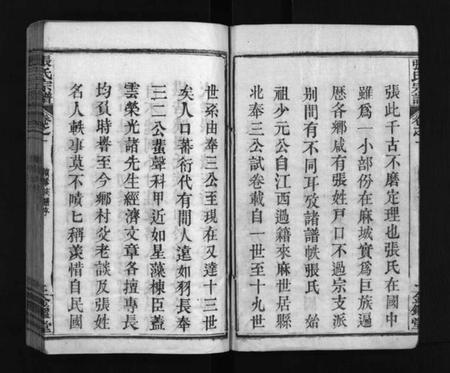 張此千古不磨定理也張氏在國中
雖爲一小部份在麻城實爲巨族遍
歷各鄉咸有張姓戸口不過宗支派
别間有不同耳攷諸譜帙張氏 始
祖少元公自江西過籍來麻世居縣
北奉三公試卷載自一世至十九世
世系由奉三公至現在又達十三世
矣人口蕃衍代有聞人遠如羽長奉
三二公蜚聲科甲近如星藻棟臣蓋
雲榮光諸先生經濟文章各擅專長
均負時譽至今鄉村父老談及張姓
名人軼事莫不嘖匕稱羡惜自民國
張氏宗譜
卷之一